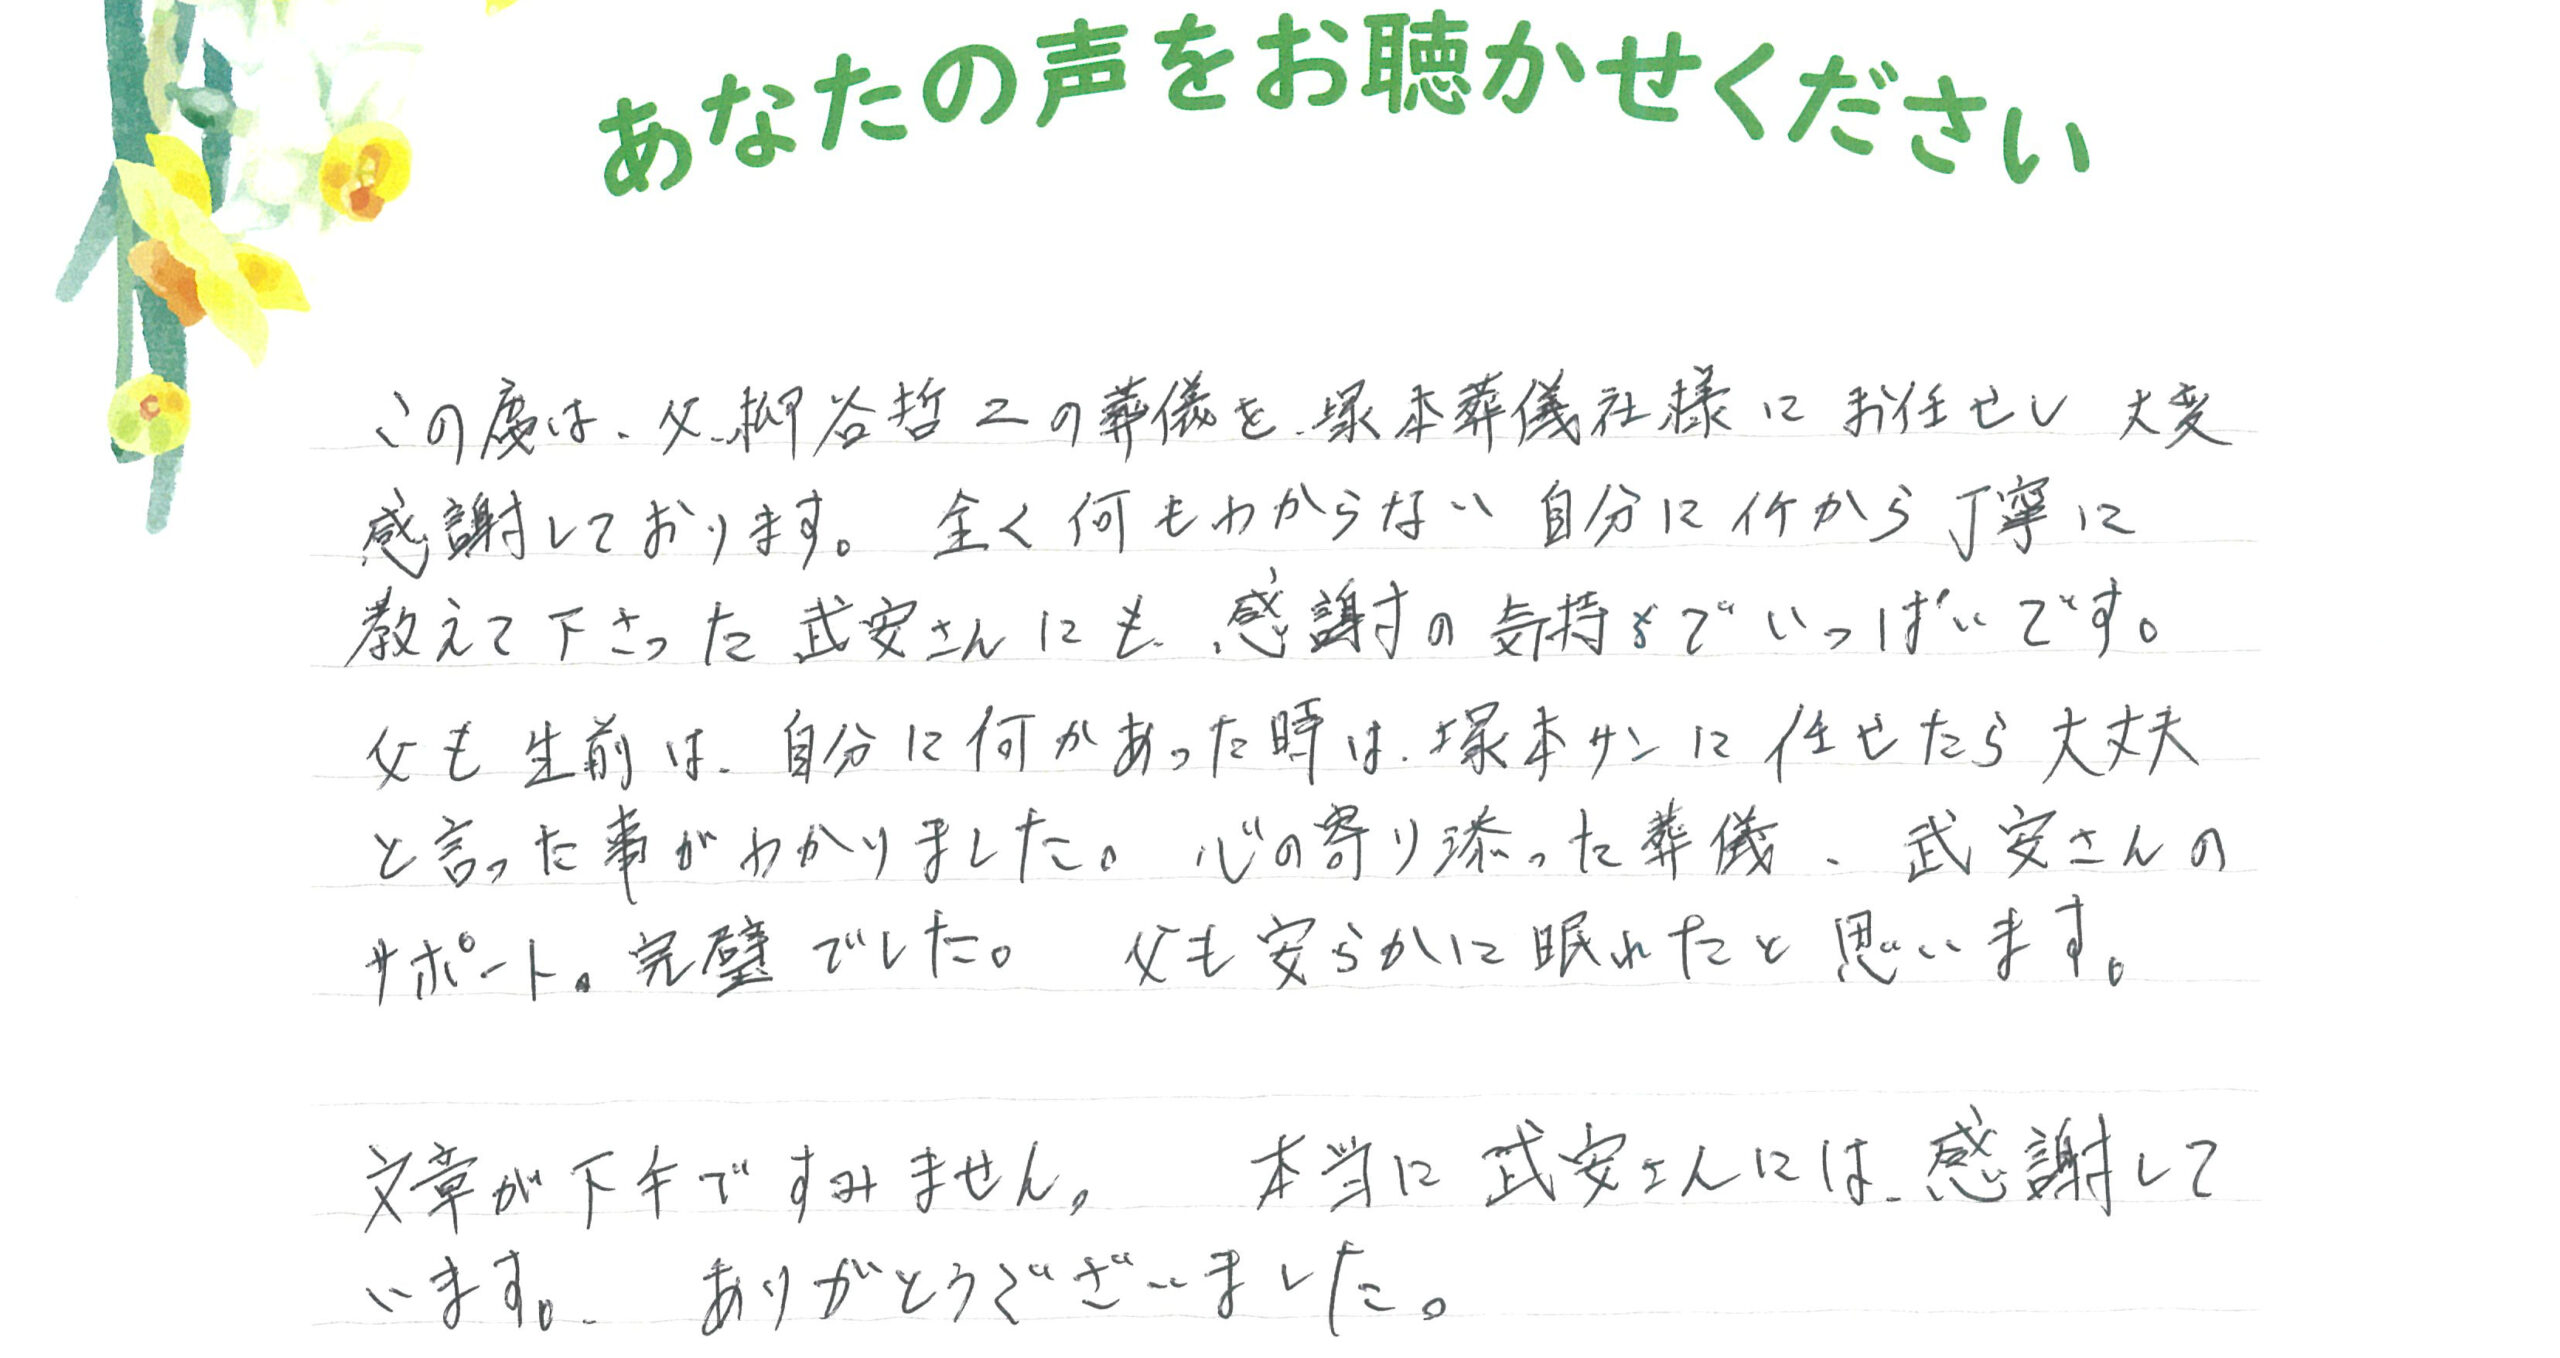 あなたの声をお聴かせください
この度は、父、柳谷哲二の葬儀を、塚本葬儀社様にお任せし大変
感謝しております。全く何もわからない自分に1から丁寧に
教えて下さった武安さんにも、感謝の気持ちでいっぱいです。
父も生前は、自分に何かあった時は、塚本サンに任せたら大丈夫
と言った事がわかりました。心の寄り添った葬儀、武安さんの
サポート。完璧でした。父も安らかに眠れたと思います。
文章が下手ですみません。本当に武安さんには、感謝して
います。ありがとうございました。